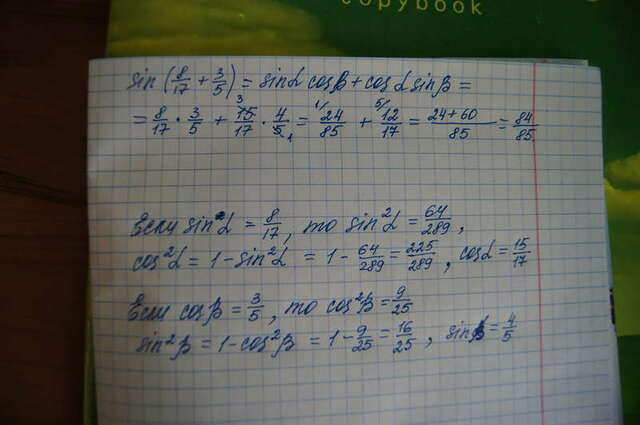 copybook
sin (8/17 + 3/5) = sinα cosβ + cosα sinβ =
= 8/17 · 3/5 + 15/17 · 4/5 = 24/85 + 12/17 = 24+60/85 = 84/85
Если sin²α = 8/17, то sin²α = 64/289,
cos²α = 1 - sin²α = 1 - 64/289 = 225/289, cosα = 15/17
Если cosβ = 3/5, то cos²β = 9/25
sin²β = 1 - cos²β = 1 - 9/25 = 16/25, sinβ = 4/5